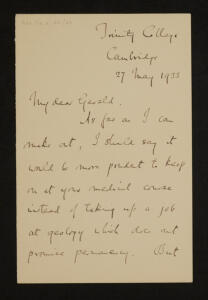 Trinity College
Cambridge
27 May 1933
My dear Gerald.
As far as I can
make out, I should say it
would be more prudent to keep
on at your medical course
instead of taking up a job
at geology which does not
promise permanency. But